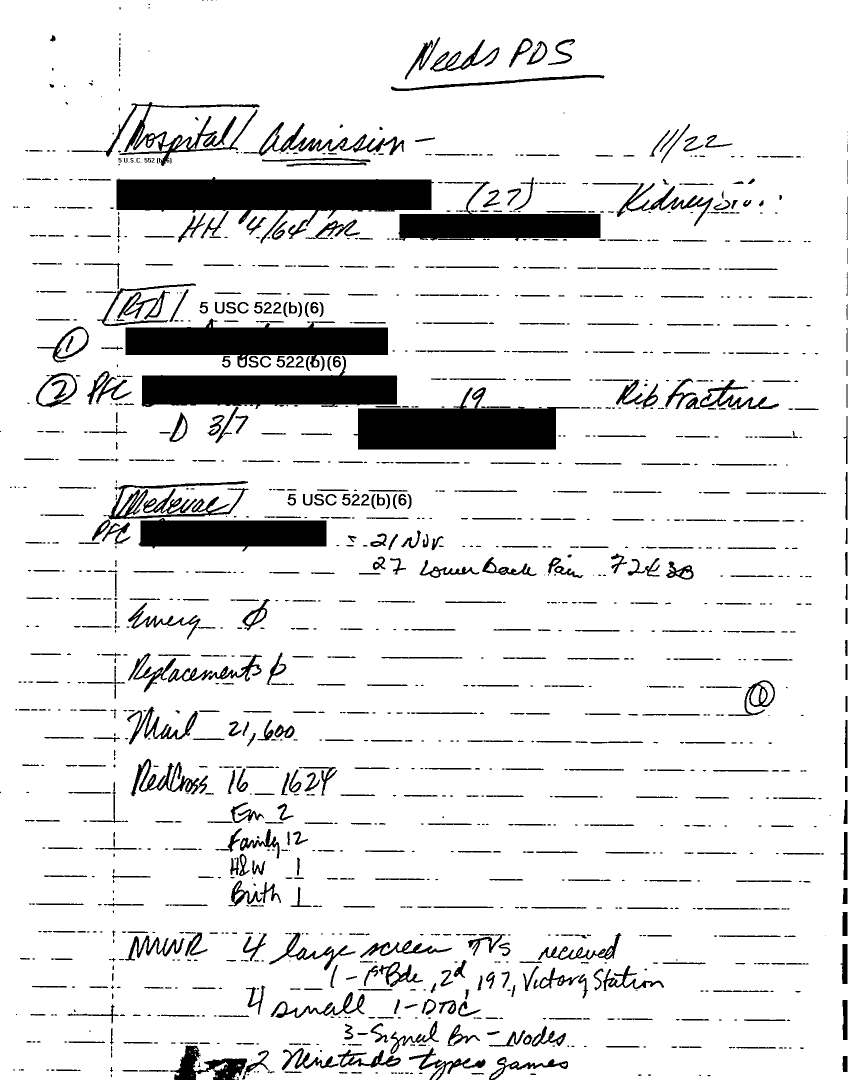 Needs PDS
Hospital Admission - 11/22
5 U.S.C. 552 (b)(6)
(27) Kidney
HH 4/64 AR
RTD 5 USC 522(b)(6)
1
5 USC 522(b)(6)
2 PFC 19 Rib Fracture
D 3/7
Medevac 5 USC 522(b)(6)
PFC = 21 Nov
27 Lower Back Pain
Emerg Ø
Replacements Ø
Mail 21,600
RedCross 16 1624
Em 2
Family 12
H&W 1
Brith 1
MWR 4 large screen TVs recieved
1 - 1st Bde, 2d, 197, Victory Station
4 small 1-DTOC
3-Signal Bn - Nodes
2 Nenetendo types games